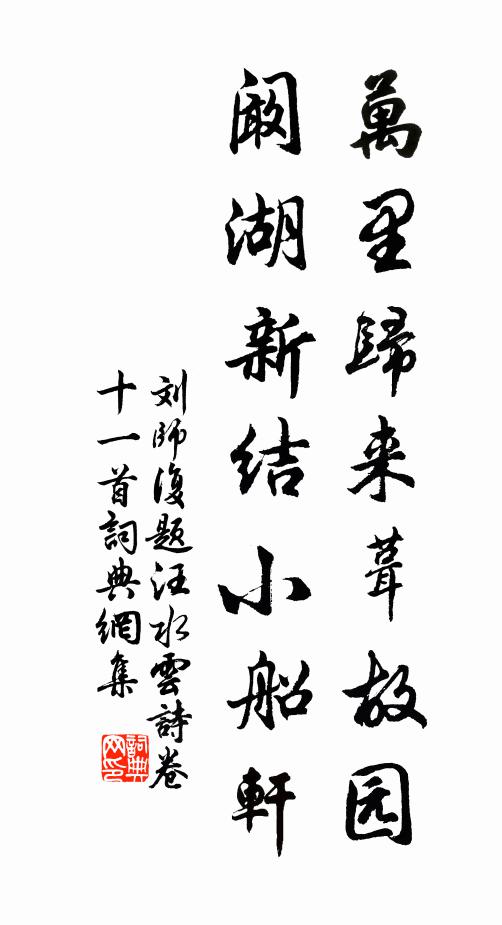 萬里歸来葺故园
阚湖新结小船軒
刘師復題汪水雲詩卷
十一首詞典網集
詞典
网印